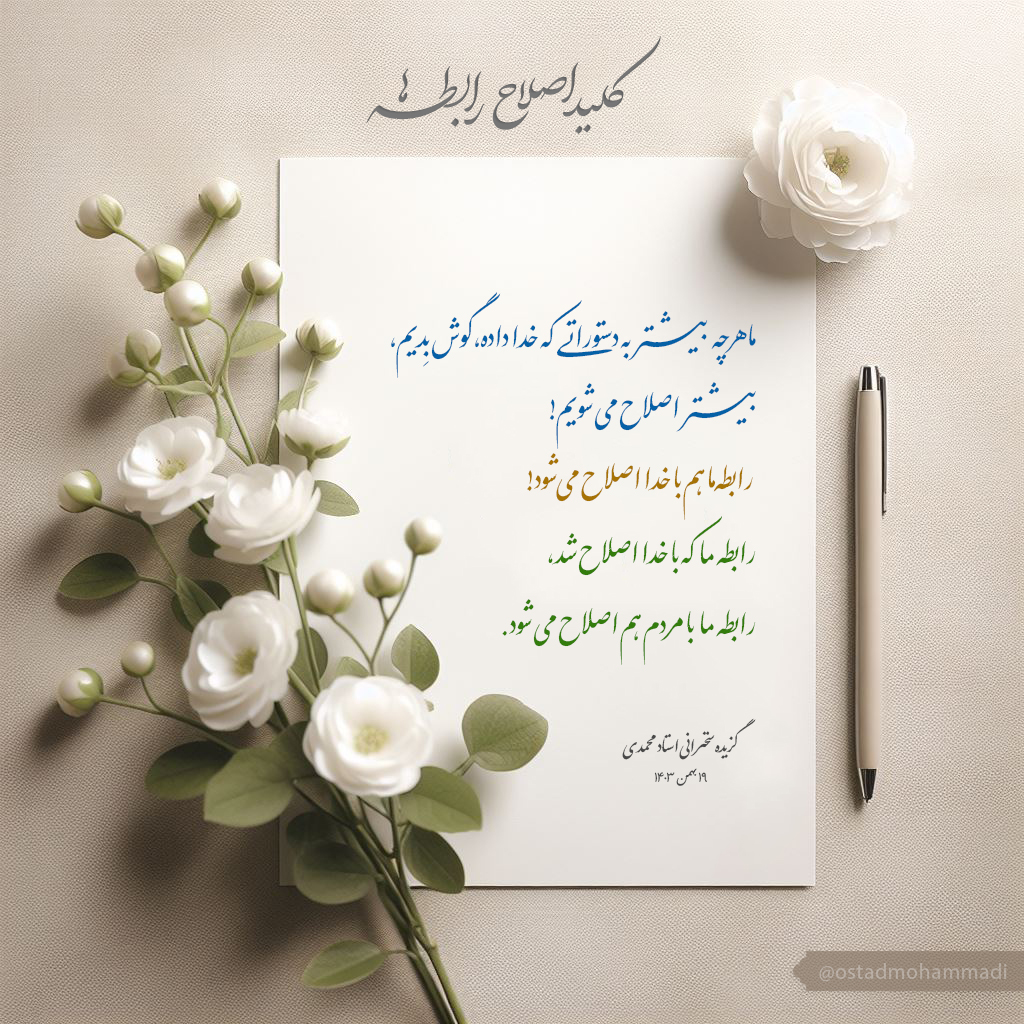 کلید اصلاح رابطه ها
ما هر چه بیشتر به دستوراتی که خدا داده، گوش بِدیم،
بیشتر اصلاح می شویم!
رابطه ما هم با خدا اصلاح می شود!
رابطه ما که با خدا اصلاح شد،
رابطه ما با مردم هم اصلاح می شود.
گزیده سخنرانی استاد محمدی
۱۹ بهمن ۱۴۰۳
@ostadmohammadi